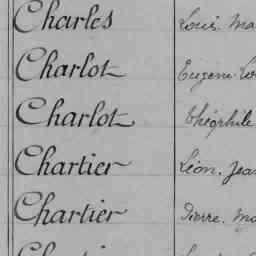 Charles Louis. Ma
Charlot Eugène. Lo
Charlot Théophile
Chartier Léon. Jea
Chartier Pierre. Ma